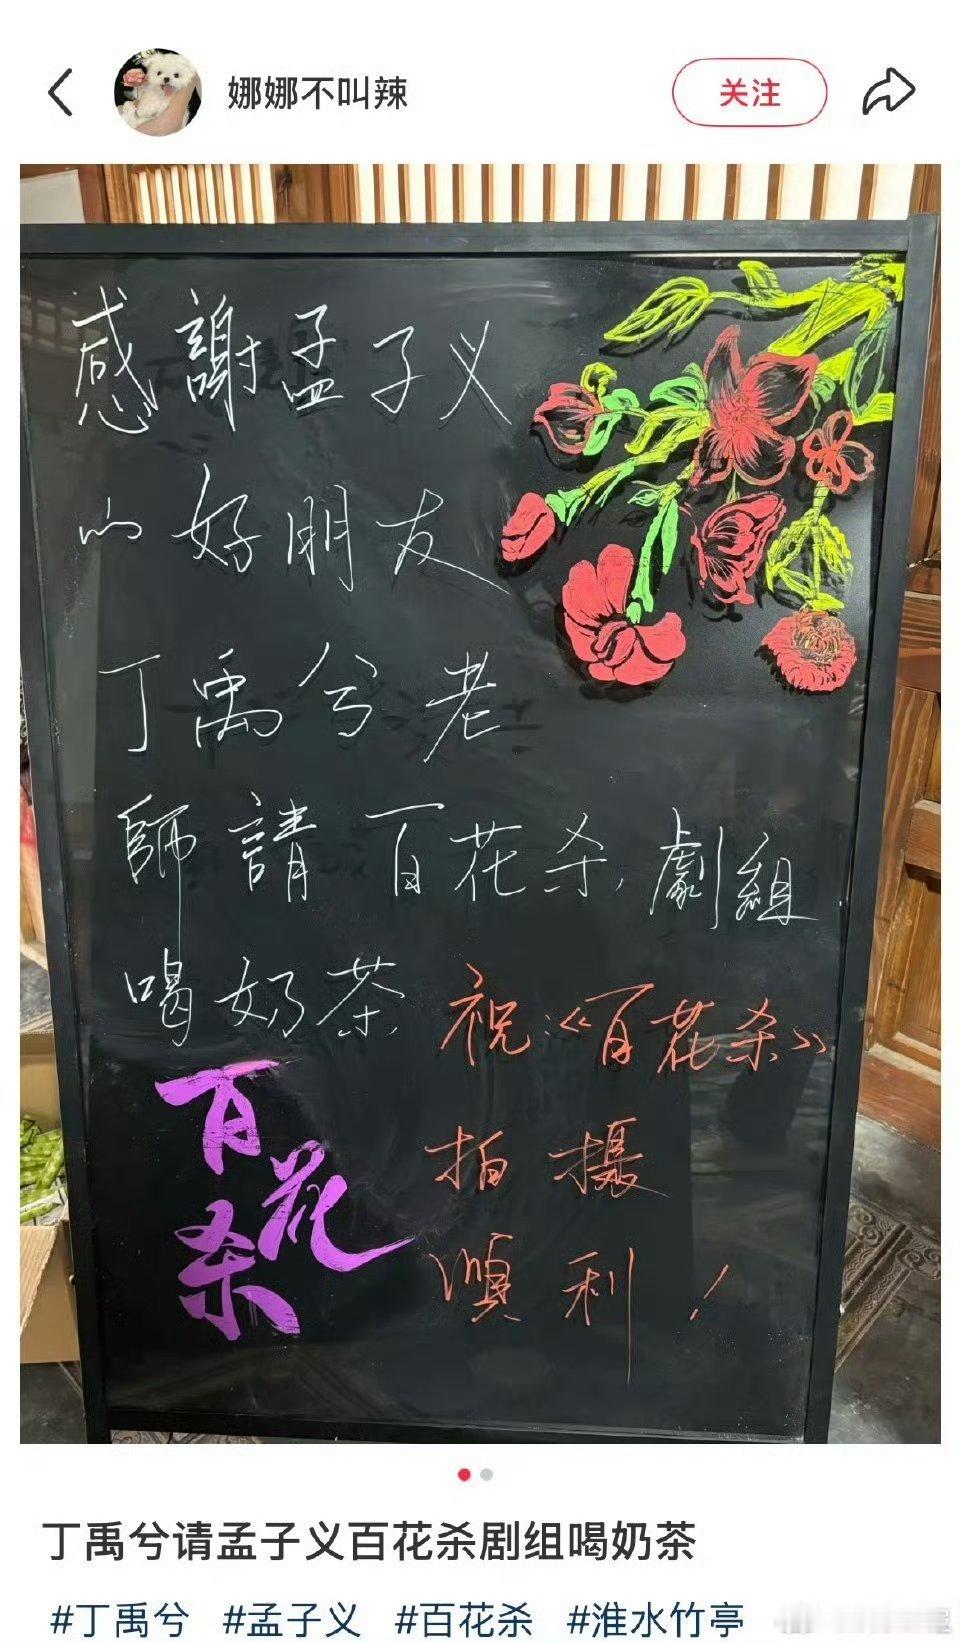 娜娜不叫辣
关注
感謝孟子义
的好朋友
丁禹兮老
師請百花杀劇組
喝奶茶
祝:《百花杀》
拍攝
順利!
百花杀
丁禹兮请孟子义百花杀剧组喝奶茶
#丁禹兮 #孟子义 #百花杀 #淮水竹亭